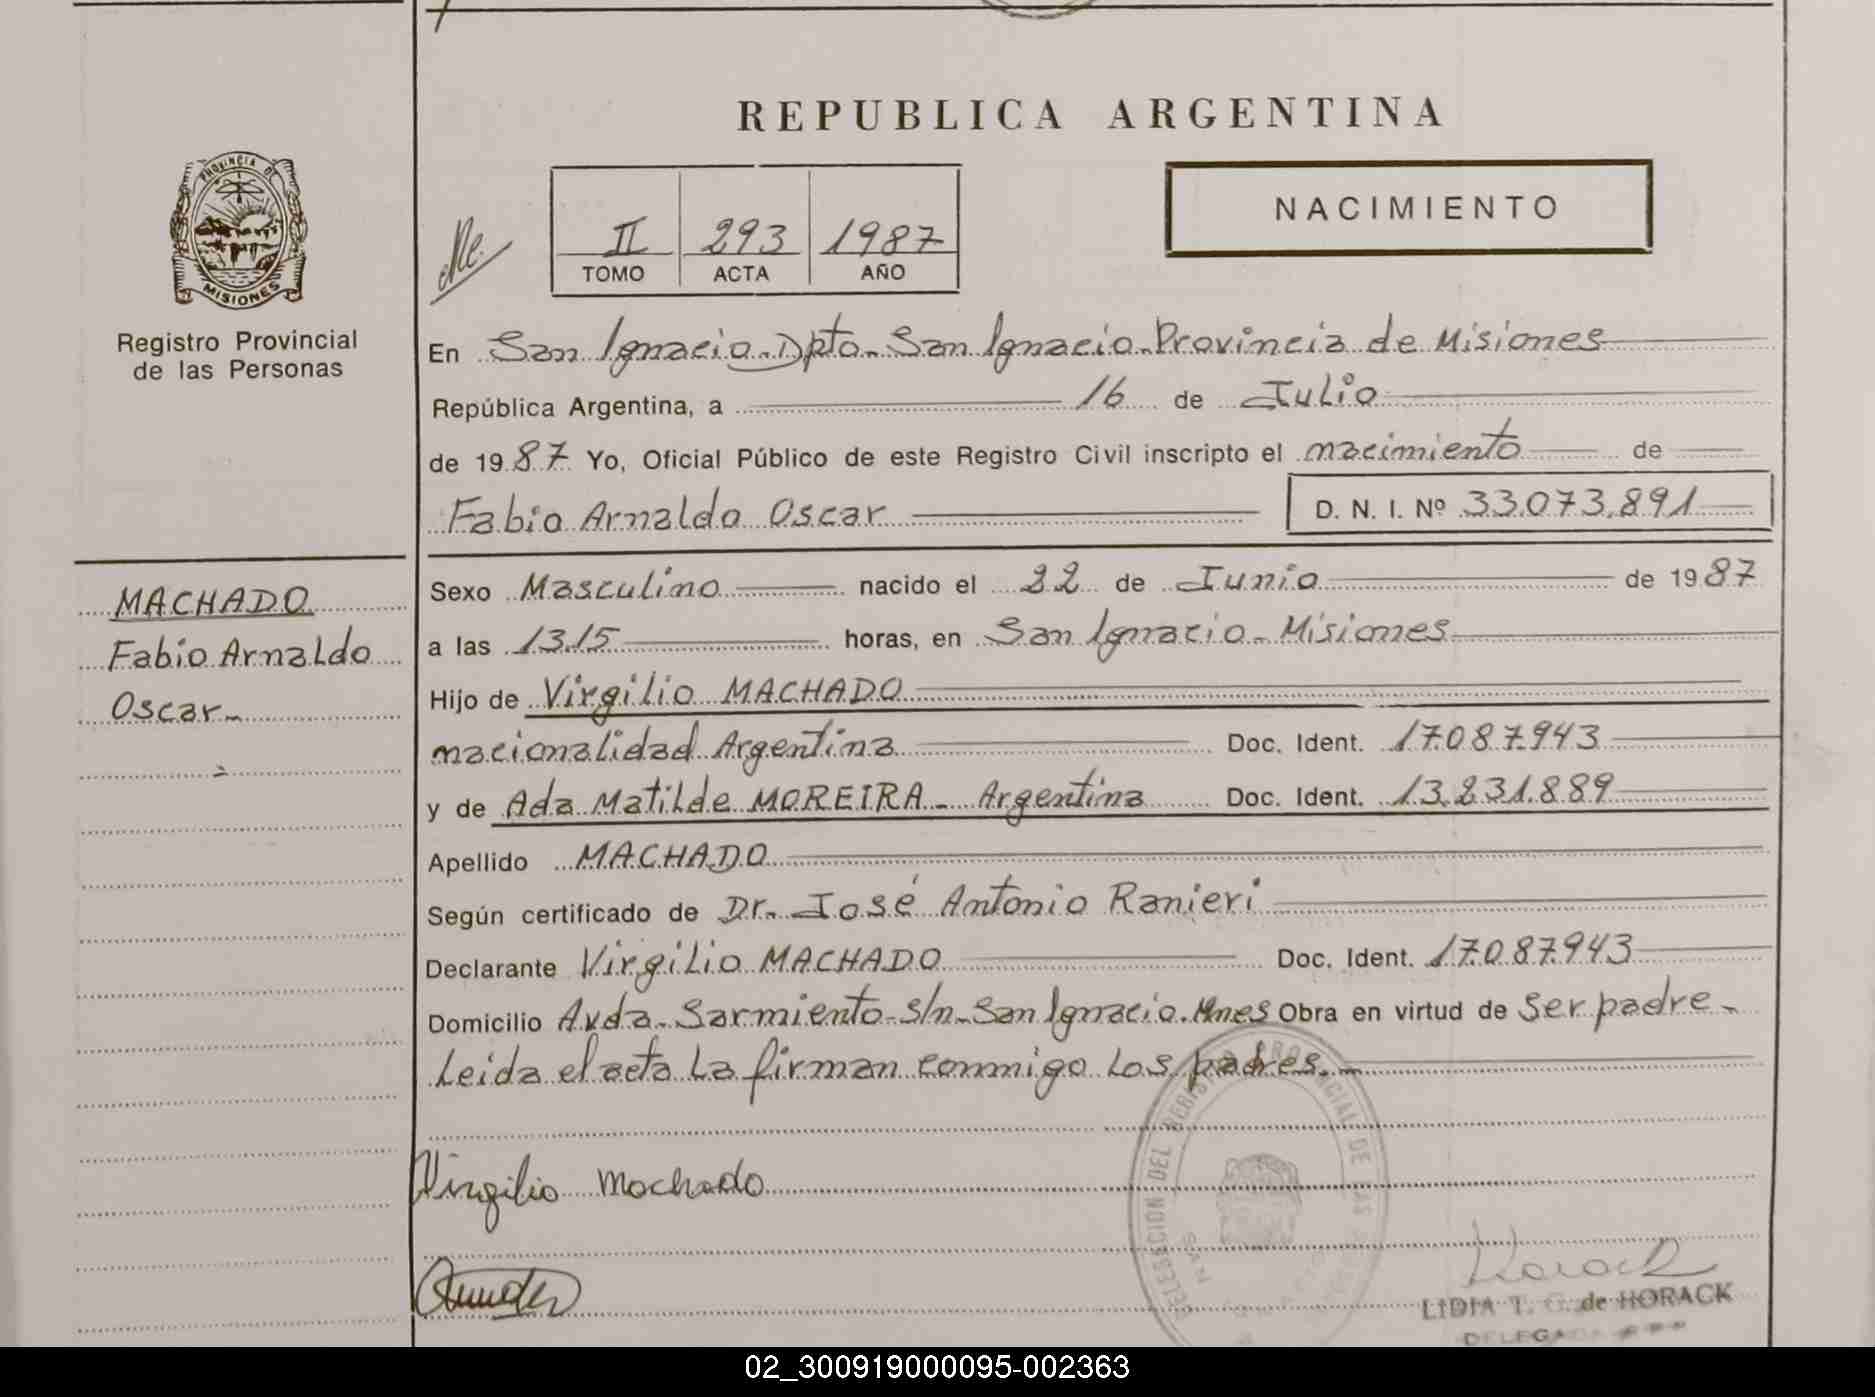 REPUBLICA ARGENTINA
PROVINCIA DE
MISIONES
Registro Provincial
de las Personas
II 293 1987
TOMO ACTA AÑO
NACIMIENTO
En San Ignacio - Dpto - San Ignacio - Provincia de Misiones
República Argentina, a 16 de Julio
de 1987 Yo, Oficial Público de este Registro Civil inscripto el nacimiento de
Fabio Arnaldo Oscar D. N. I. Nº 33.073.891
MACHADO
Fabio Arnaldo
Oscar -
Sexo Masculino nacido el 22 de Junio de 1987
a las 13.15 horas, en San Ignacio - Misiones
Hijo de Virgilio MACHADO
nacionalidad Argentina Doc. Ident. 17.087.943
y de Ada Matilde MOREIRA - Argentina Doc. Ident. 13.231.889
Apellido MACHADO
Según certificado de Dr. José Antonio Ranieri
Declarante Virgilio MACHADO Doc. Ident. 17.087.943
Domicilio Avda - Sarmiento - s/n - San Ignacio . Mnes Obra en virtud de Ser padre -
Leida el acta la firman conmigo los padres. -
Virgilio Machado
DELEGACION DEL REGISTRO PROVINCIAL DE LAS
SAN
Horack
LIDIA T. G. de HORACK
DELEGADA
02_300919000095-002363